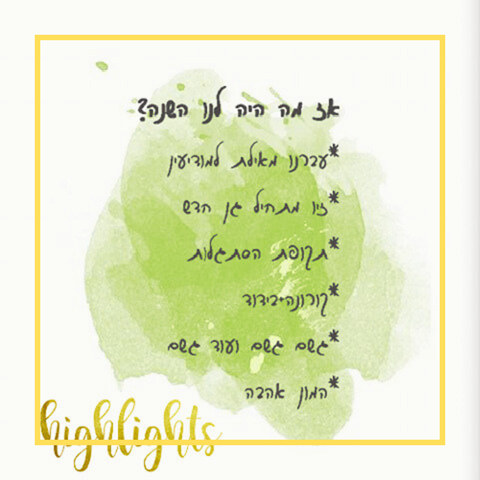 אז מה היה לנו השנה?
*עברנו מאילת למודיעין
*זיו מתחיל גן חדש
*תקופת הסתגלות
*קורונה+בידוד
*גשם גשם ועוד גשם
*המון אהבה
highlights